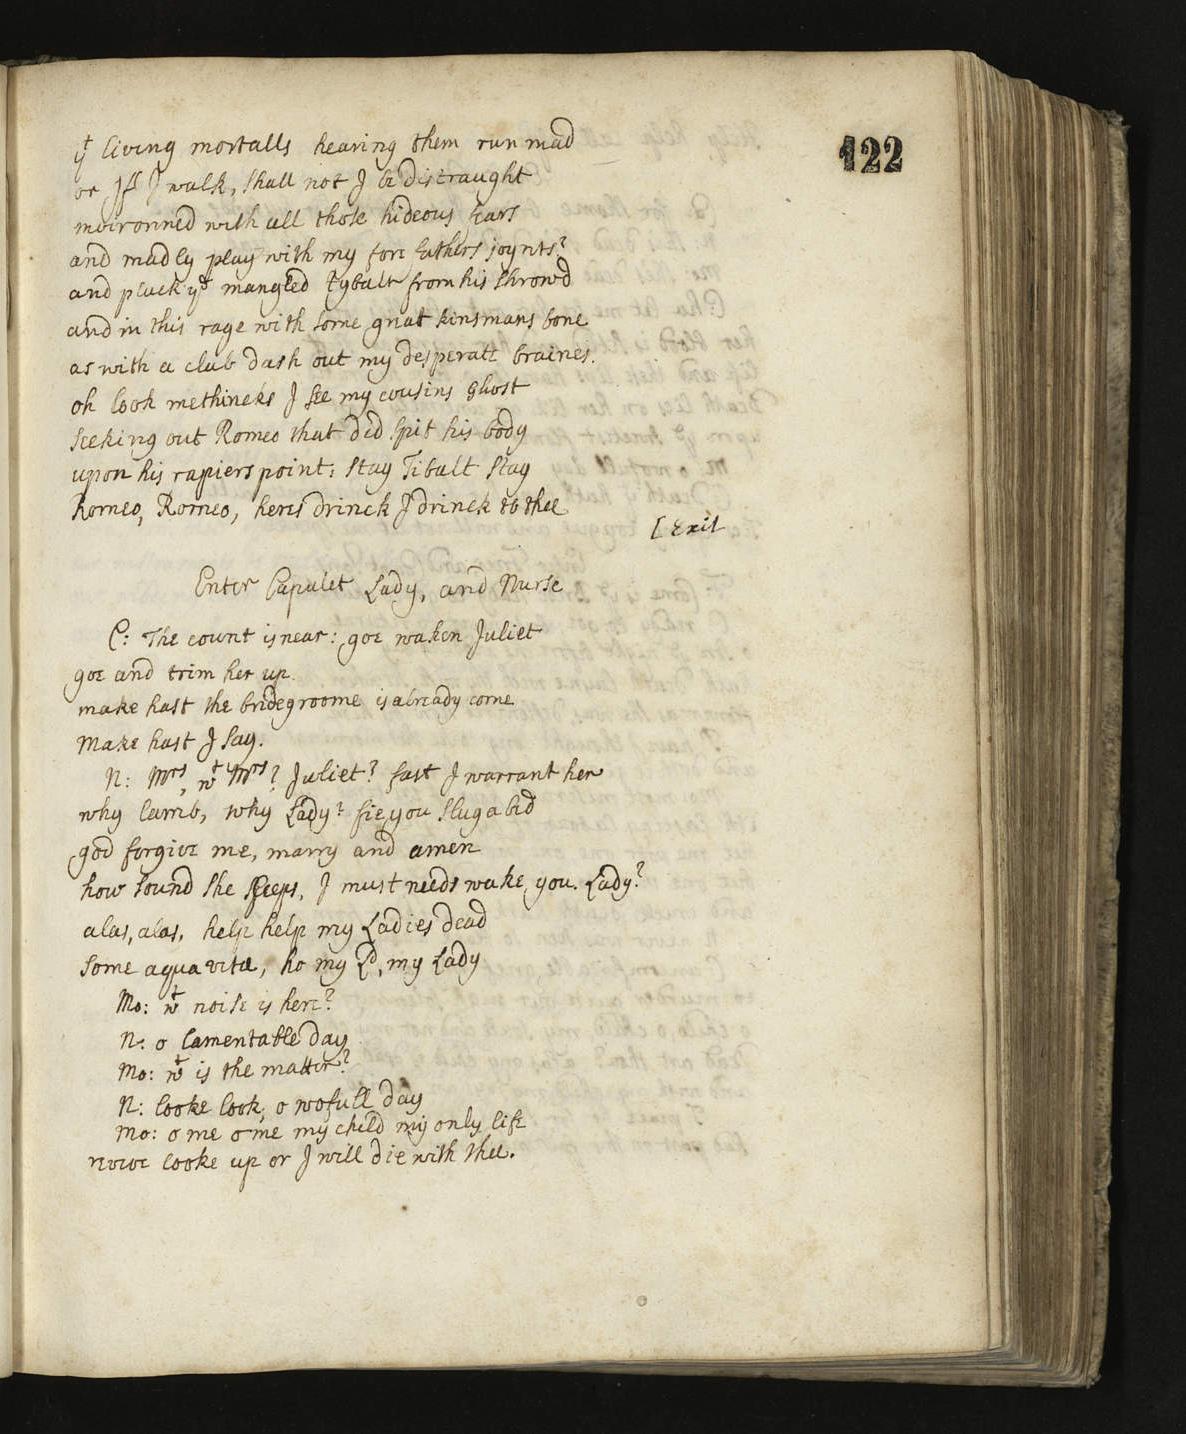 122
yt living mortalls hearing them run mad
or If I walk, shall not I be distraught
invironned with all those hideous fears
and madly play with my fore fathers joynts?
and pluck ye mangled Tybalt from his shrowd
and in this rage with some great kinsmans bone
as with a club dash out my desperatt braines.
oh look methineks I see my cousins Ghost
seeking out Romeo that did spit his body
upon his rapiers point: stay Tibalt stay
Romeo, Romeo, heres drinck I drinck to thee
[Exit
Enter Capulet Lady, and Nurse
C: The count is near: goe waken Juliet
goe and trim her up.
make hast the bridegroome is already come
make hast I say.
N: Mrs, wt Mrs? Juliet? fast I warrant her
why lamb, why Lady? fie you slugabed
god forgive me, marry and amen
how sound she sleeps, I must needs wake you. Lady?
alas, alas, help help my Ladies dead
some aqua vitæ, ho my Ld, my Lady
Mo: wt noise is here?
N: o lamentable day
Mo: wt is the matter?
N: looke look, o wofull day
Mo: o me o me my child my only life
revive looke up or I will die with thee.